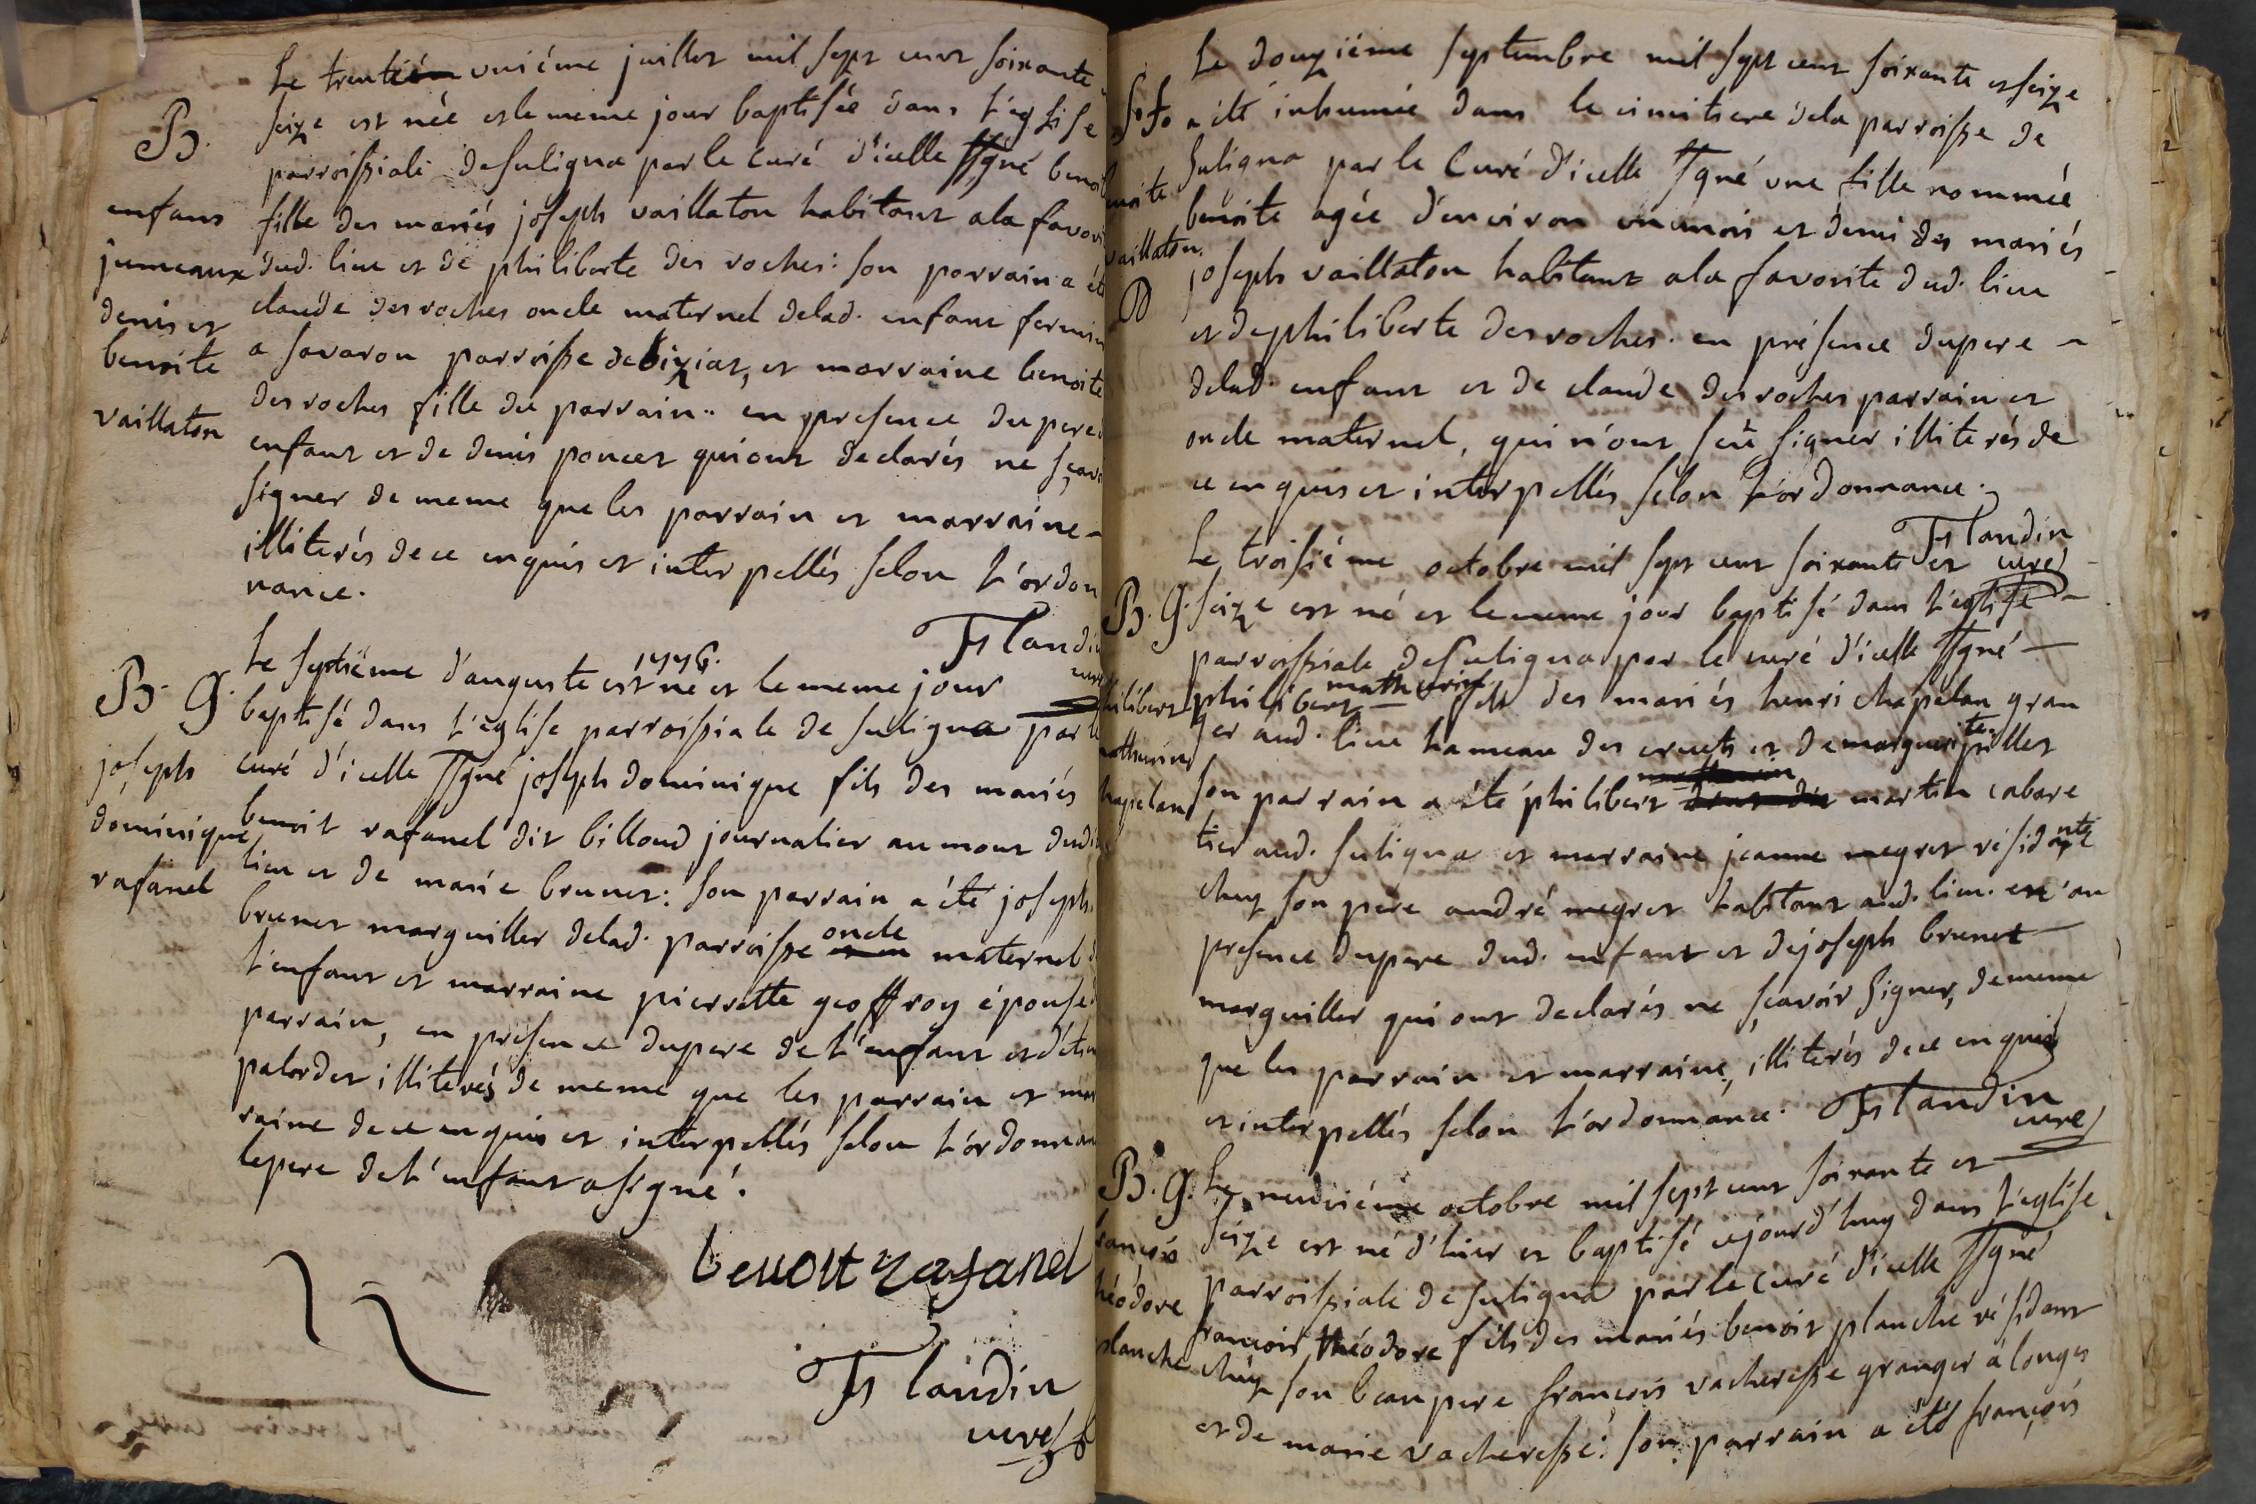 Le trentiém uniéme juillet mil sept cent soixante
B.
seize est née et le meme jour baptisée dans l'eglise
parroissiale de suligna par le curé d'icelle ssgné benoi
enfans
fille des mariés joseph vaillaton habitant a la favori
jumeaux
dud. lieu et de philiberte des roches: son parrain a été
denis et
claude des roches oncle maternel delad. enfant fermi
benoite
a savaron parroisse de biziat, et marraine benoite
vaillaton
des roches fille du parrain: en presence du pere
enfant et de denis poncet qui ont declarés ne sçavo
signer de meme que les parrain et marraine
illiterés de ce enquis et interpellés selon l'ordon
nance.
Flandin
curé
B. G.
joseph
dominique
rafanel
Le septiéme d'auguste 1776. est né et le meme jour
baptisé dans l'eglise parroissiale de suligna par le
curé d'icelle ssgné joseph dominique fils des mariés
benoit rafanel dit billoud journalier au mont dudi
lieu et de marie brunet: son parrain a été joseph
brunet marguiller delad. parroisse oncle maternel d
l'enfant et marraine pierrette geoffroy épouse d
parrain, en présence du pere de l'enfant et d'éti
palordet illiterés de meme que les parrain et mar
raine de ce enquis et interpellés selon l'ordonnan
le pere de l'enfant a signé.
benoit rafanel
Flandin
curé
Le douziéme septembre mil sept cent soixante et seize
a été inhumée dans le cimitiere de la parroisse de
suligna par le Curé d'icelle ssgné une fille nommée
noite
benoite agée d'environ un mois et demi des mariés
vaillaton.
joseph vaillaton habitant a la favorite dud. lieu
et de philiberte des roches. en présence du pere
delad. enfant et de claude des roches parrain et
oncle maternel, qui n'ont sçû signer illiterés de
ce enquis et interpellés selon l'ordonnance.
Flandin
curé
B. G.
hilibert
mathurin
hapelan
Le troisiéme octobre mil sept cent soixante et
seize est né et le meme jour baptisé dans l'eglise
parroissiale de suligna par le curé d'icelle ssgné
philibert mathurin fils des mariés henri chapelan gran
ger aud. lieu hameau des cruets et de marguerite pillet
son parrain a été philibert martin cabare
tier aud. suligna et marraine jeanne megret residante
chez son pere andré megret habitant aud. lieu. en
presence du pere dud. enfant et de joseph brunet
marguiller qui ont declarés ne sçavoir signer, de meme
que les parrain et marraine, illiterés de ce enquis
et interpellés selon l'ordonnance. Flandin
curé
B. G.
rançois
héodore
planche
Le neuviéme octobre mil sept cent soixante et
seize est né d'hier et baptisé cejourd'huy dans l'eglise
parroissiale de suligna par le curé d'icelle ssgné
françois théodore fils des mariés benoit planche résidant
chez son beau pere françois vacheresse granger à longes
et de marie vacheresse: son parrain a été françois